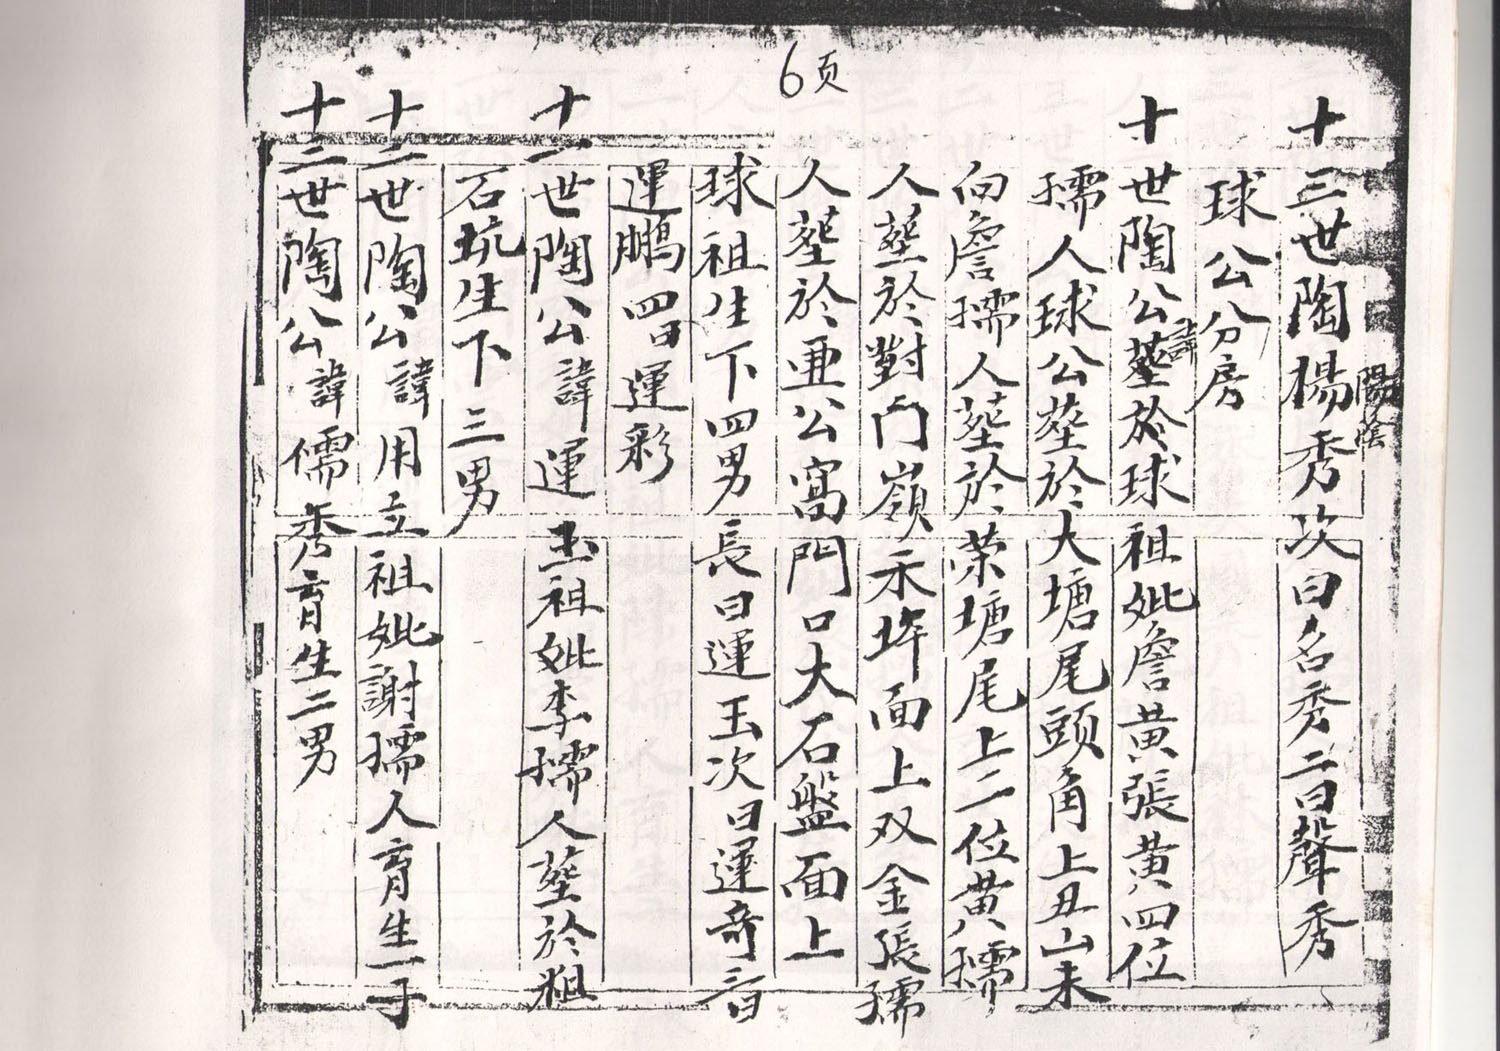 6页
十三世陶楊秀次曰名秀二曰聲秀
陽蔭
球公分房
十世陶公諱塟於球祖妣詹黄張黄四位
孺人球公塟於大塘尾頭角上丑山未
向詹孺人塟於荣塘尾上二位黄孺
人塟於對門嶺禾坪面上双金張孺
人塟於亜公窩門口大石盤面上
球祖生下四男長曰運玉次曰運奇三曰
運鵬四曰運彩
十一世陶公諱運玉祖妣李孺人塟於粗
石坑生下三男
十二世陶公諱用立祖妣謝孺人育生一子
十三世陶公諱儒秀育生二男